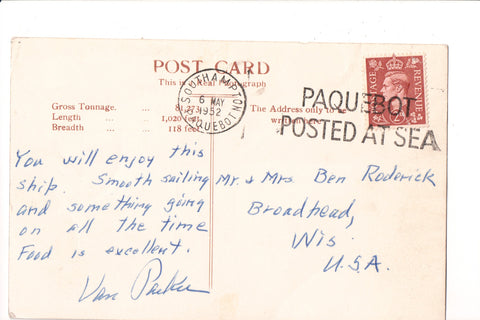 POST CARD
This is a Real Photograph
Gross Tonnage. ... ... 81,273
Length ... ... 1,020 feet
Breadth ... ... 118 feet
The Address only to be
written here
SOUTHAMPTON
6 MAY
1952
PAQUEBOT
POSTAGE REVENUE
PAQUEBOT
POSTED AT SEA
You will enjoy this
ship. Smooth sailing
and something going
on all the time
Food is excellent.
Van Parker
Mr. & Mrs Ben Roderick
Broadhead,
Wis.
U.S.A.